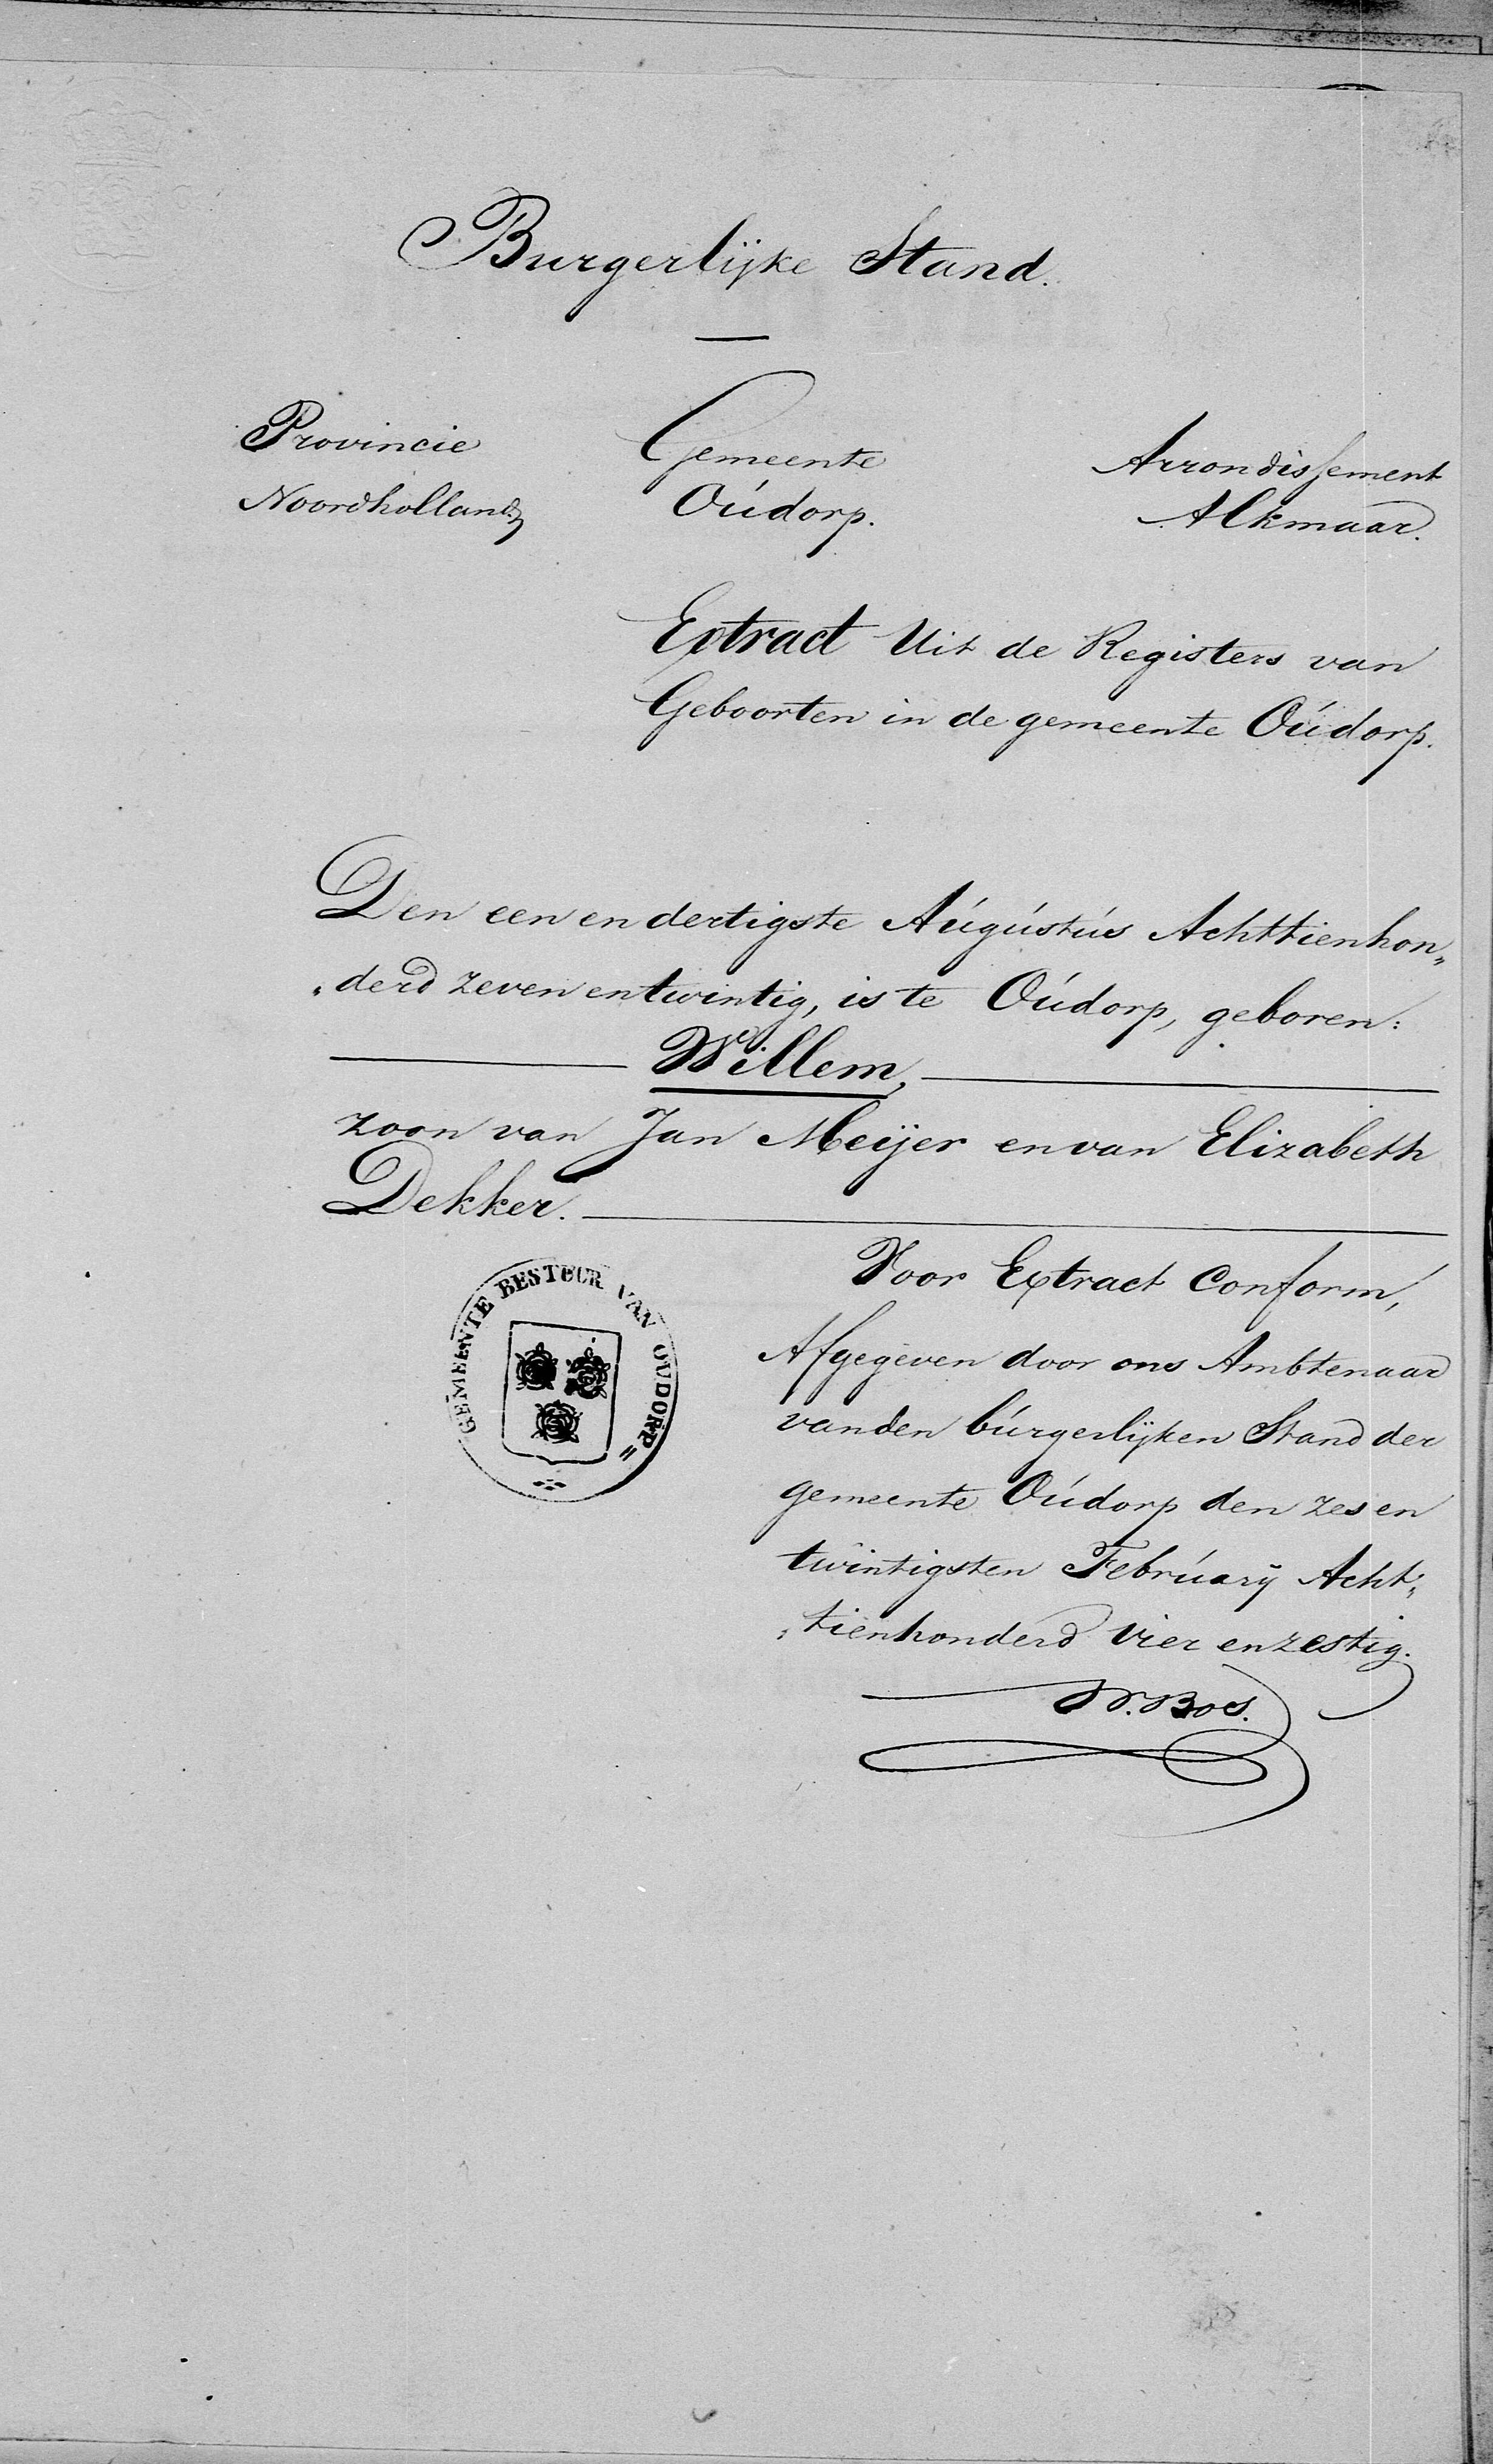 Burgerlijke Stand.
Provincie
Noordholland
Gemeente
Oúdorp.
Arrondissement
Alkmaar.
Extract Uit de Registers van
Geboorten in de gemeente Oúdorp.
Den een en dertigste Aúgústús Achttienhon„
„derd zeven en twintig, is te Oúdorp, geboren:
Willem,
zoon van Jan Meijer en van Elizabeth
Dekker.
GEMEENTE BESTUUR VAN OUDORP
Voor Extract Conform,
Afgegeven door ons Ambtenaar
van den búrgerlijken Stand der
gemeente Oúdorp den zes en
twintigsten Febrúarij Acht„
„tienhonderd Vier en zestig.
W. Boes.